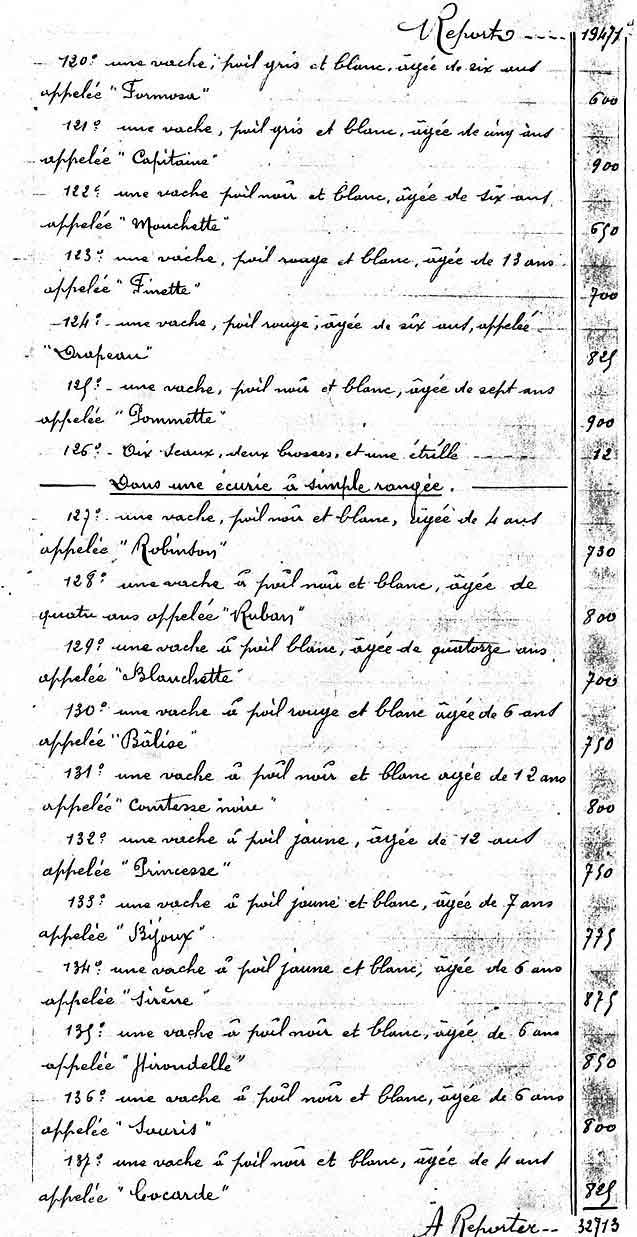 Report ---- 19471
120° une vache, poil gris et blanc, âgée de six ans
appelée "Formosa" 600
121° une vache, poil gris et blanc, âgée de cinq ans
appelée "Capitaine" 900
122° une vache poil noir et blanc, âgée de six ans
appelée "Mouchette" 650
123° une vache, poil rouge et blanc, âgée de 13 ans
appelée "Finette" 700
124° une vache, poil rouge, âgée de six ans, appelée
"Drapeau" 825
125° une vache, poil noir et blanc, âgée de sept ans
appelée "Pommette" 900
126° Dix seaux, deux brosses, et une étrille ---- 12
Dans une écurie à simple rangée.
127° une vache, poil noir et blanc, âgée de 4 ans
appelée "Robinson" 730
128° une vache à poil noir et blanc, âgée de
quatre ans appelée "Ruban" 800
129° une vache à poil blanc, âgée de quatorze ans
appelée "Blanchette" 700
130° une vache à poil rouge et blanc âgée de 6 ans
appelée "Bâlise" 750
131° une vache à poil noir et blanc âgée de 12 ans
appelée "Comtesse noire" 800
132° une vache à poil jaune, âgée de 12 ans
appelée "Princesse" 750
133° une vache à poil jaune et blanc, âgée de 7 ans
appelée "Bijoux" 775
134° une vache à poil jaune et blanc, âgée de 6 ans
appelée "Sirène" 875
135° une vache à poil noir et blanc, âgée de 6 ans
appelée "Hirondelle" 850
136° une vache à poil noir et blanc, âgée de 6 ans
appelée "Souris" 800
137° une vache à poil noir et blanc, âgée de 4 ans
appelée "Cocarde" 825
À Reporter -- 32713